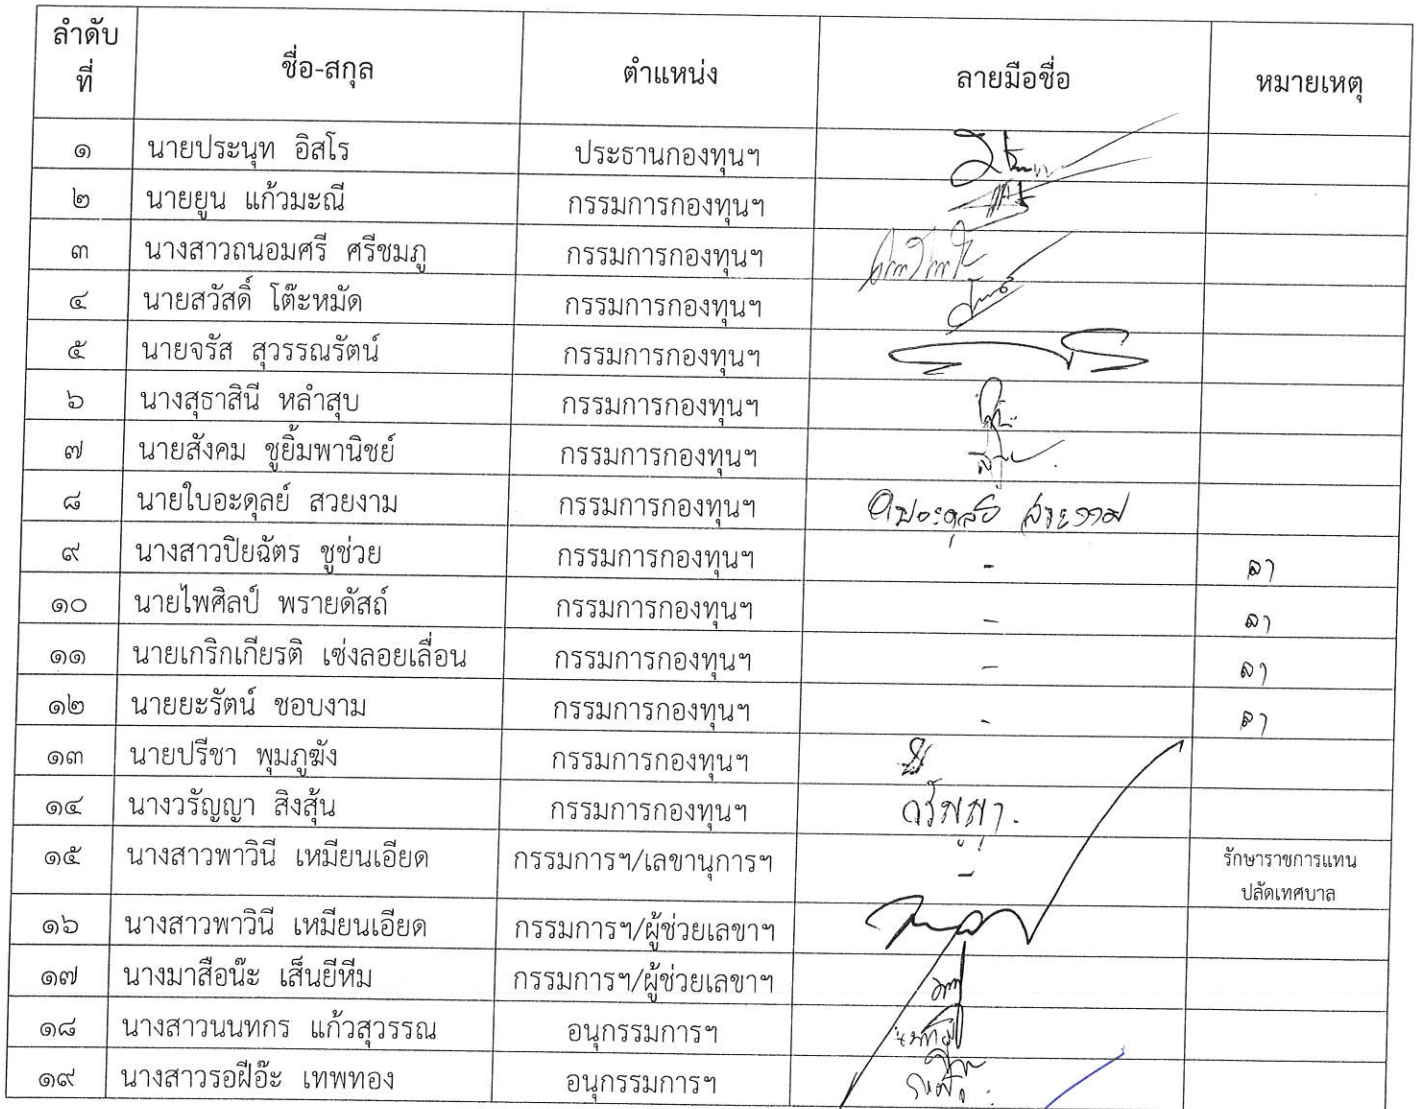 ลำดับ
ที่
ชื่อ-สกุล
ตำแหน่ง
ลายมือชื่อ
หมายเหตุ
๑ นายประนุท อิสโร ประธานกองทุนฯ
๒ นายยูน แก้วมะณี กรรมการกองทุนฯ
๓ นางสาวถนอมศรี ศรีชมภู กรรมการกองทุนฯ
๔ นายสวัสดิ์ โต๊ะหมัด กรรมการกองทุนฯ
๕ นายจรัส สุวรรณรัตน์ กรรมการกองทุนฯ
๖ นางสุธาสินี หลำสุบ กรรมการกองทุนฯ
๗ นายสังคม ชูยิ้มพานิชย์ กรรมการกองทุนฯ
๘ นายใบอะดุลย์ สวยงาม กรรมการกองทุนฯ ใบอะดุลย์ สวยงาม
๙ นางสาวปิยฉัตร ชูช่วย กรรมการกองทุนฯ - ลา
๑๐ นายไพศิลป์ พรายดัสถ์ กรรมการกองทุนฯ - ลา
๑๑ นายเกริกเกียรติ เช่งลอยเลื่อน กรรมการกองทุนฯ - ลา
๑๒ นายยะรัตน์ ชอบงาม กรรมการกองทุนฯ - ลา
๑๓ นายปรีชา พุมภูฆัง กรรมการกองทุนฯ
๑๔ นางวรัญญา สิงสุ้น กรรมการกองทุนฯ วรัญญา.
๑๕ นางสาวพาวินี เหมียนเอียด กรรมการฯ/เลขานุการฯ - รักษาราชการแทน
ปลัดเทศบาล
๑๖ นางสาวพาวินี เหมียนเอียด กรรมการฯ/ผู้ช่วยเลขาฯ
๑๗ นางมาสือน๊ะ เส็นยีหีม กรรมการฯ/ผู้ช่วยเลขาฯ
๑๘ นางสาวนนทกร แก้วสุวรรณ อนุกรรมการฯ
๑๙ นางสาวรอฝีอ๊ะ เทพทอง อนุกรรมการฯ